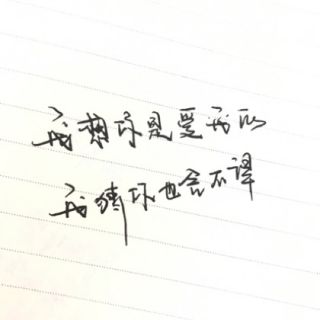 我想你是爱我的
我猜你也舍不得